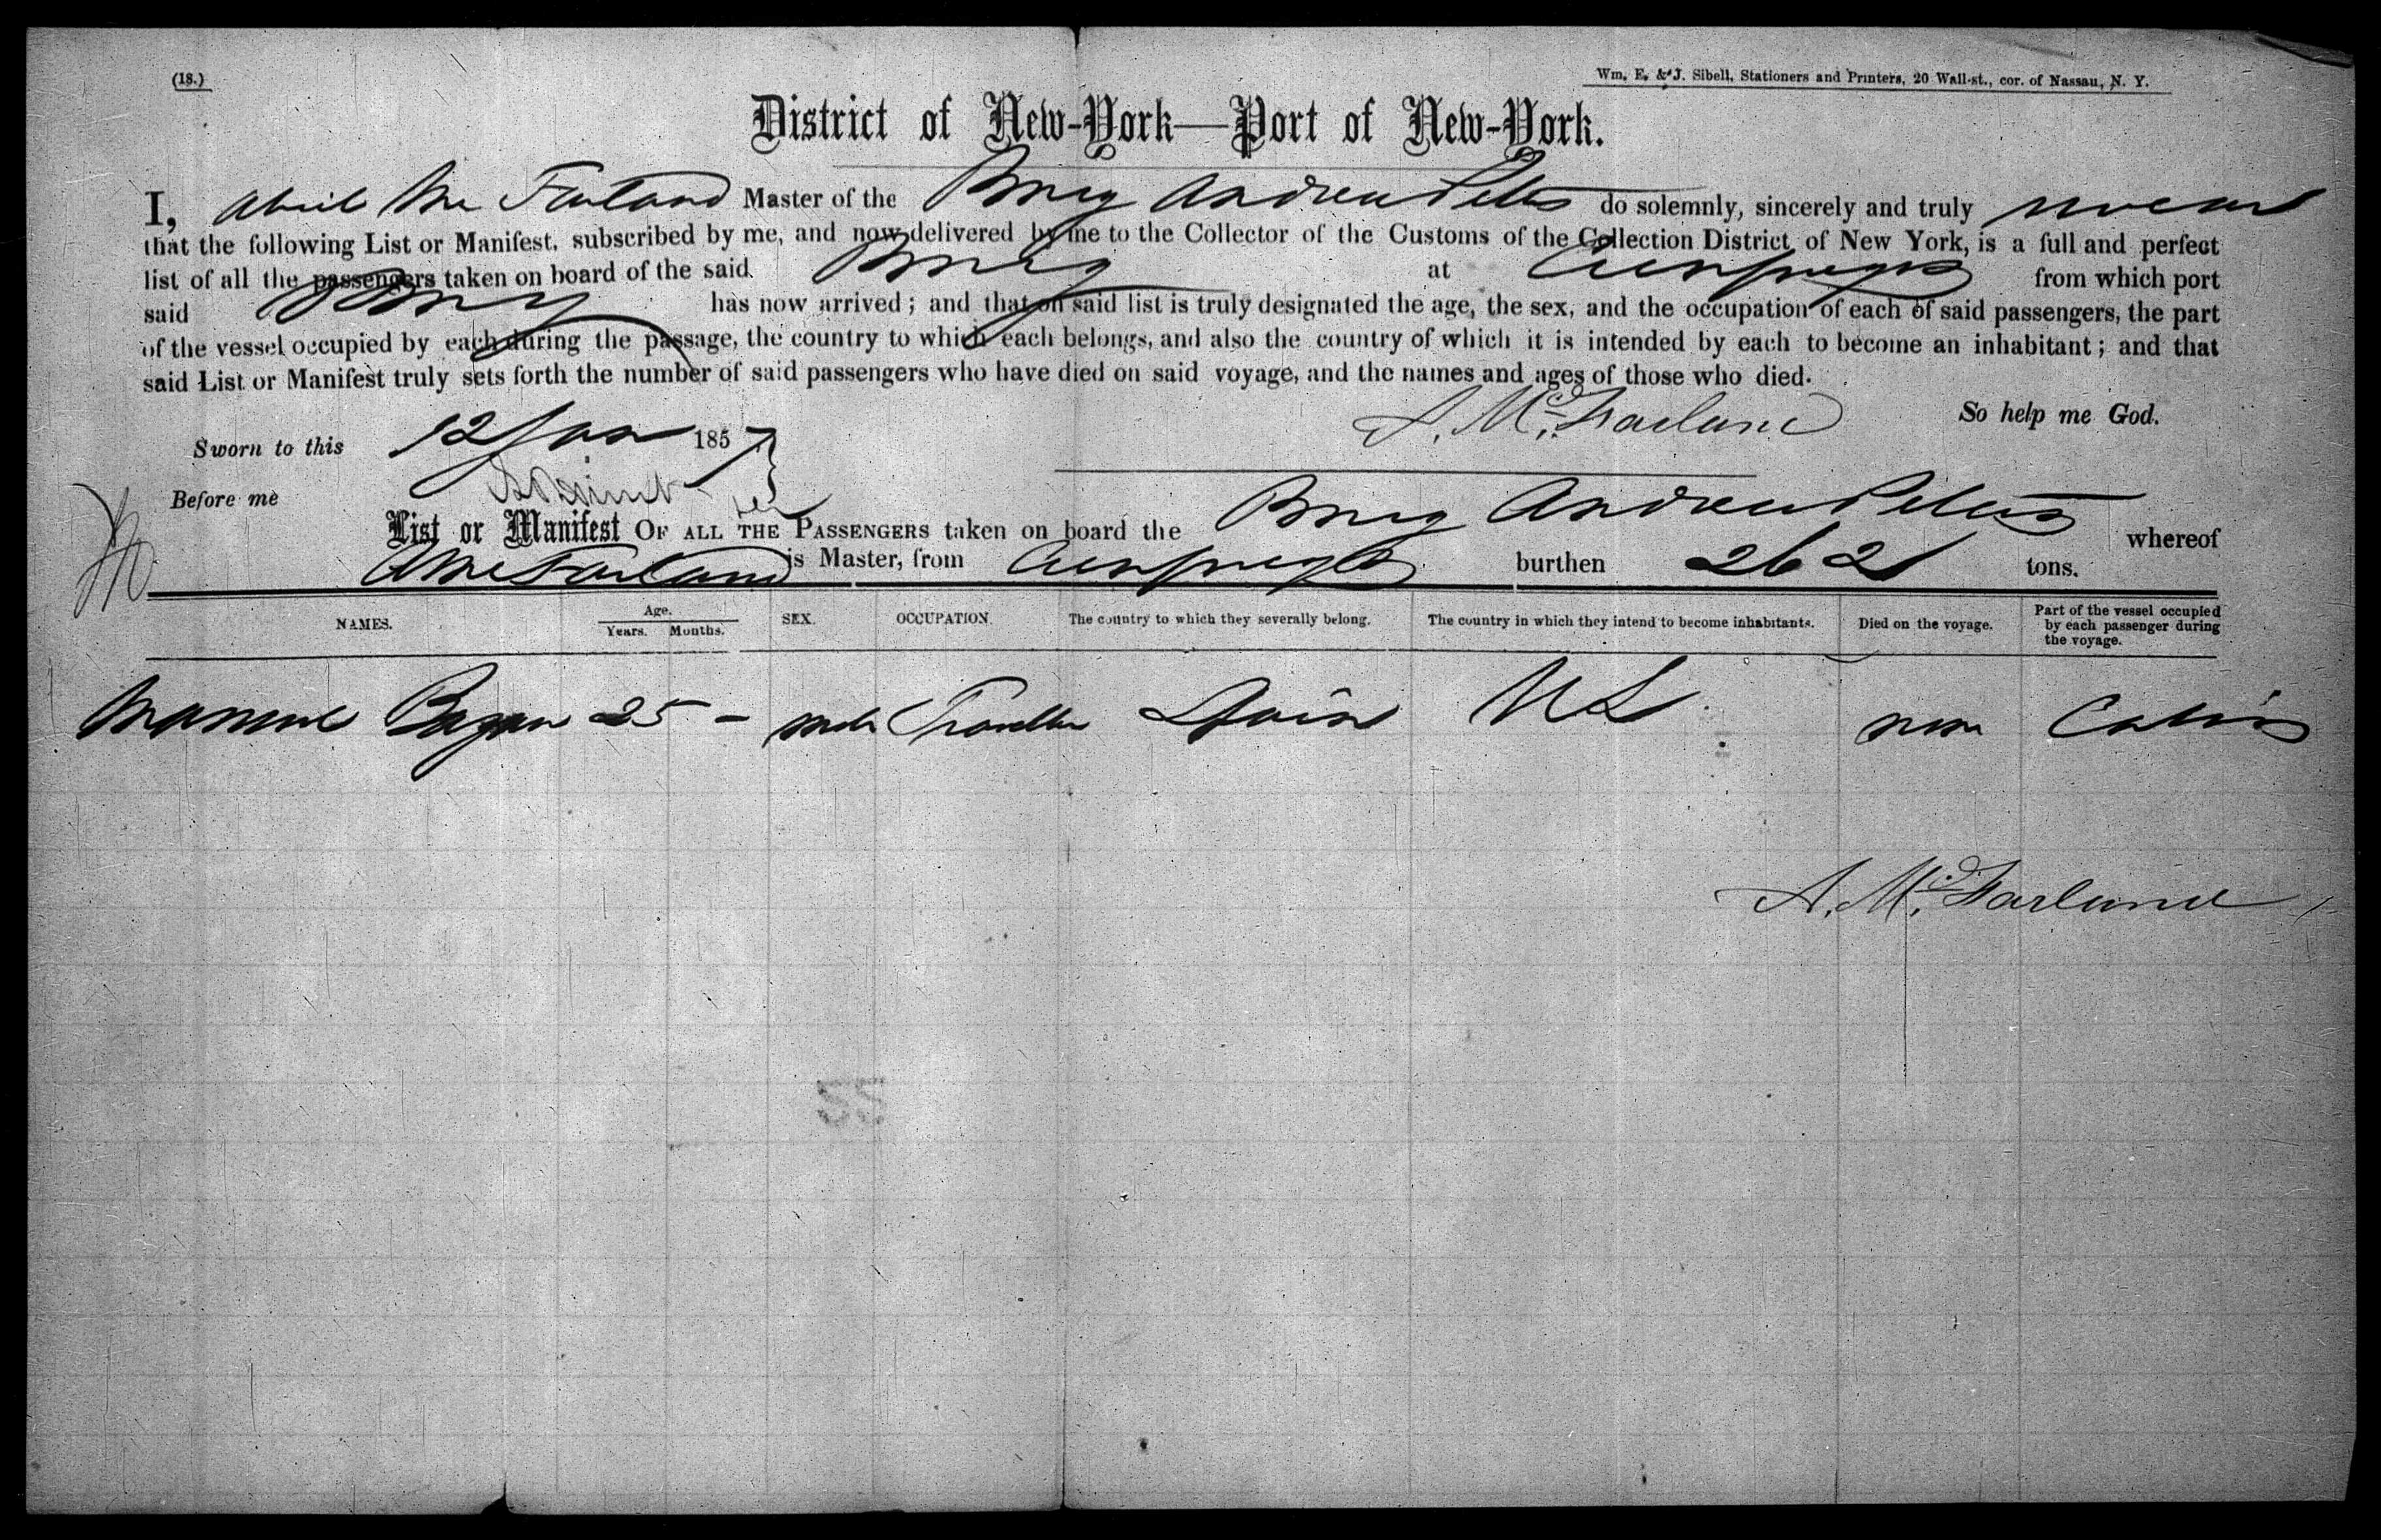 (18.)
Wm. E. & J. Sibell, Stationers and Printers, 20 Wall-st., cor. of Nassau, N. Y.
District of New-York—Port of New-York.
I, Mc Farland Master of the Brig Andrew Peters do solemnly, sincerely and truly swear
that the following List or Manifest, subscribed by me, and now delivered by me to the Collector of the Customs of the Collection District of New York, is a full and perfect
list of all the passengers taken on board of the said Brig at Cienfuegos from which port
said Brig has now arrived; and that on said list is truly designated the age, the sex, and the occupation of each of said passengers, the part
of the vessel occupied by each during the passage, the country to which each belongs, and also the country of which it is intended by each to become an inhabitant; and that
said List or Manifest truly sets forth the number of said passengers who have died on said voyage, and the names and ages of those who died.
A. McFarland So help me God.
Sworn to this 12 Jan 1857
Before me
List or Manifest OF ALL THE PASSENGERS taken on board the Brig Andrew Peters whereof
A Mc Farland is Master, from Cienfuegos burthen 262 tons.
NAMES. Age. Years. Months. SEX. OCCUPATION. The country to which they severally belong. The country in which they intend to become inhabitants. Died on the voyage. Part of the vessel occupied by each passenger during the voyage.
Manuel 25 - male Traveller Spain U S none Cabin
A. McFarland